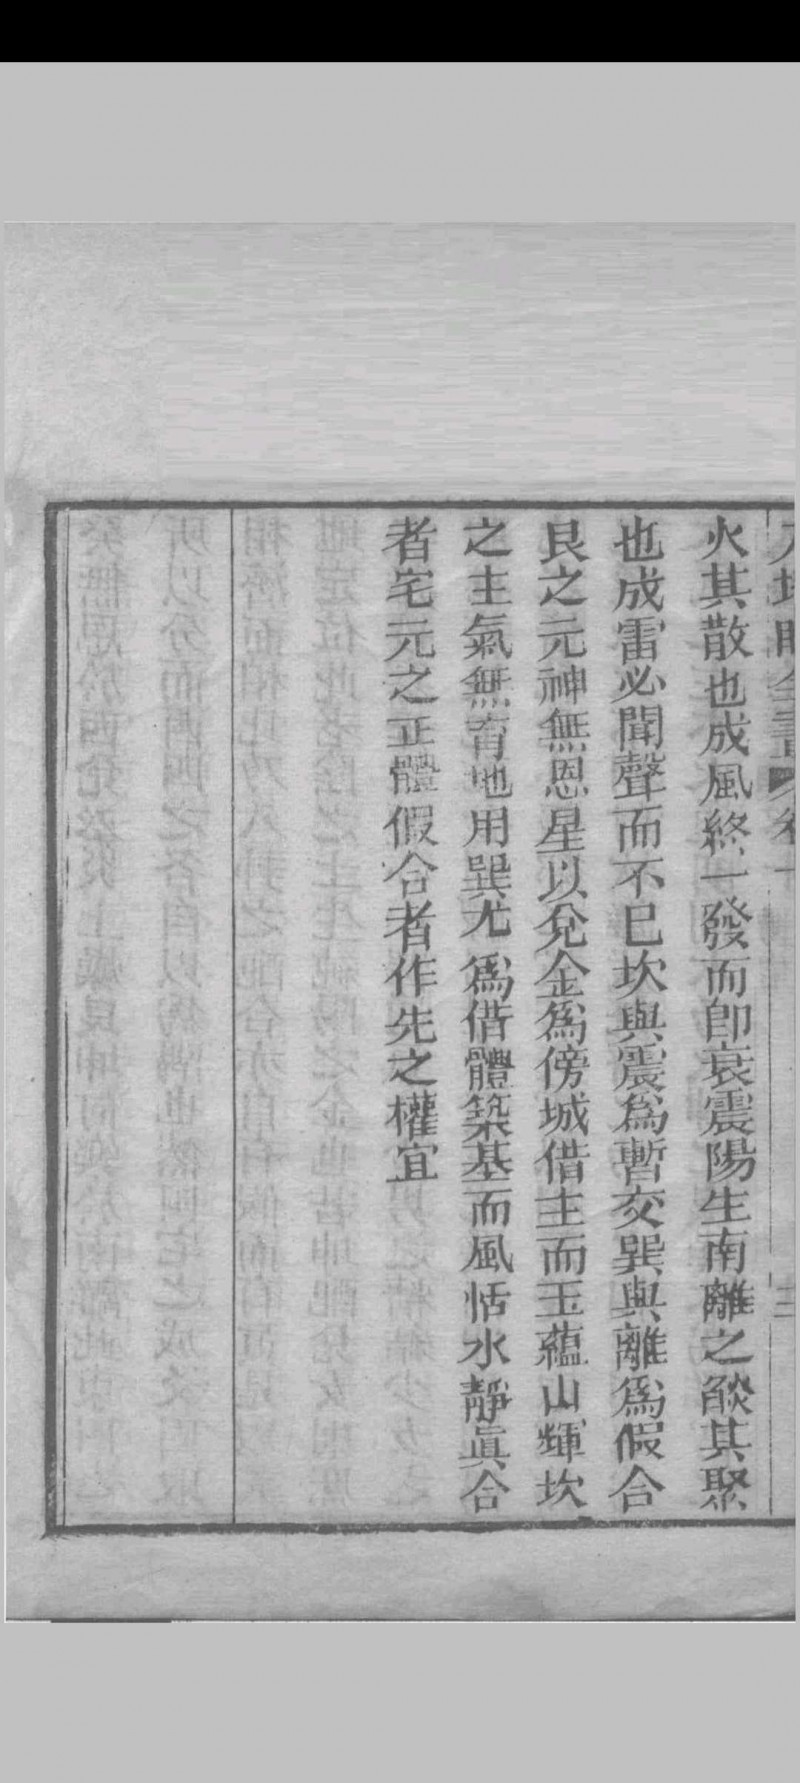 火其散也成風終一發而卽衰震陽生南離之燄其聚
也成雷必聞聲而不已坎與震爲暫交巽與離爲假合
艮之元神無恩星以兌金爲傍城借主而玉蘊山輝坎
之主氣無育地用巽尤爲借體築基而風恬水靜眞合
者宅元之正體假合者作先之權宜